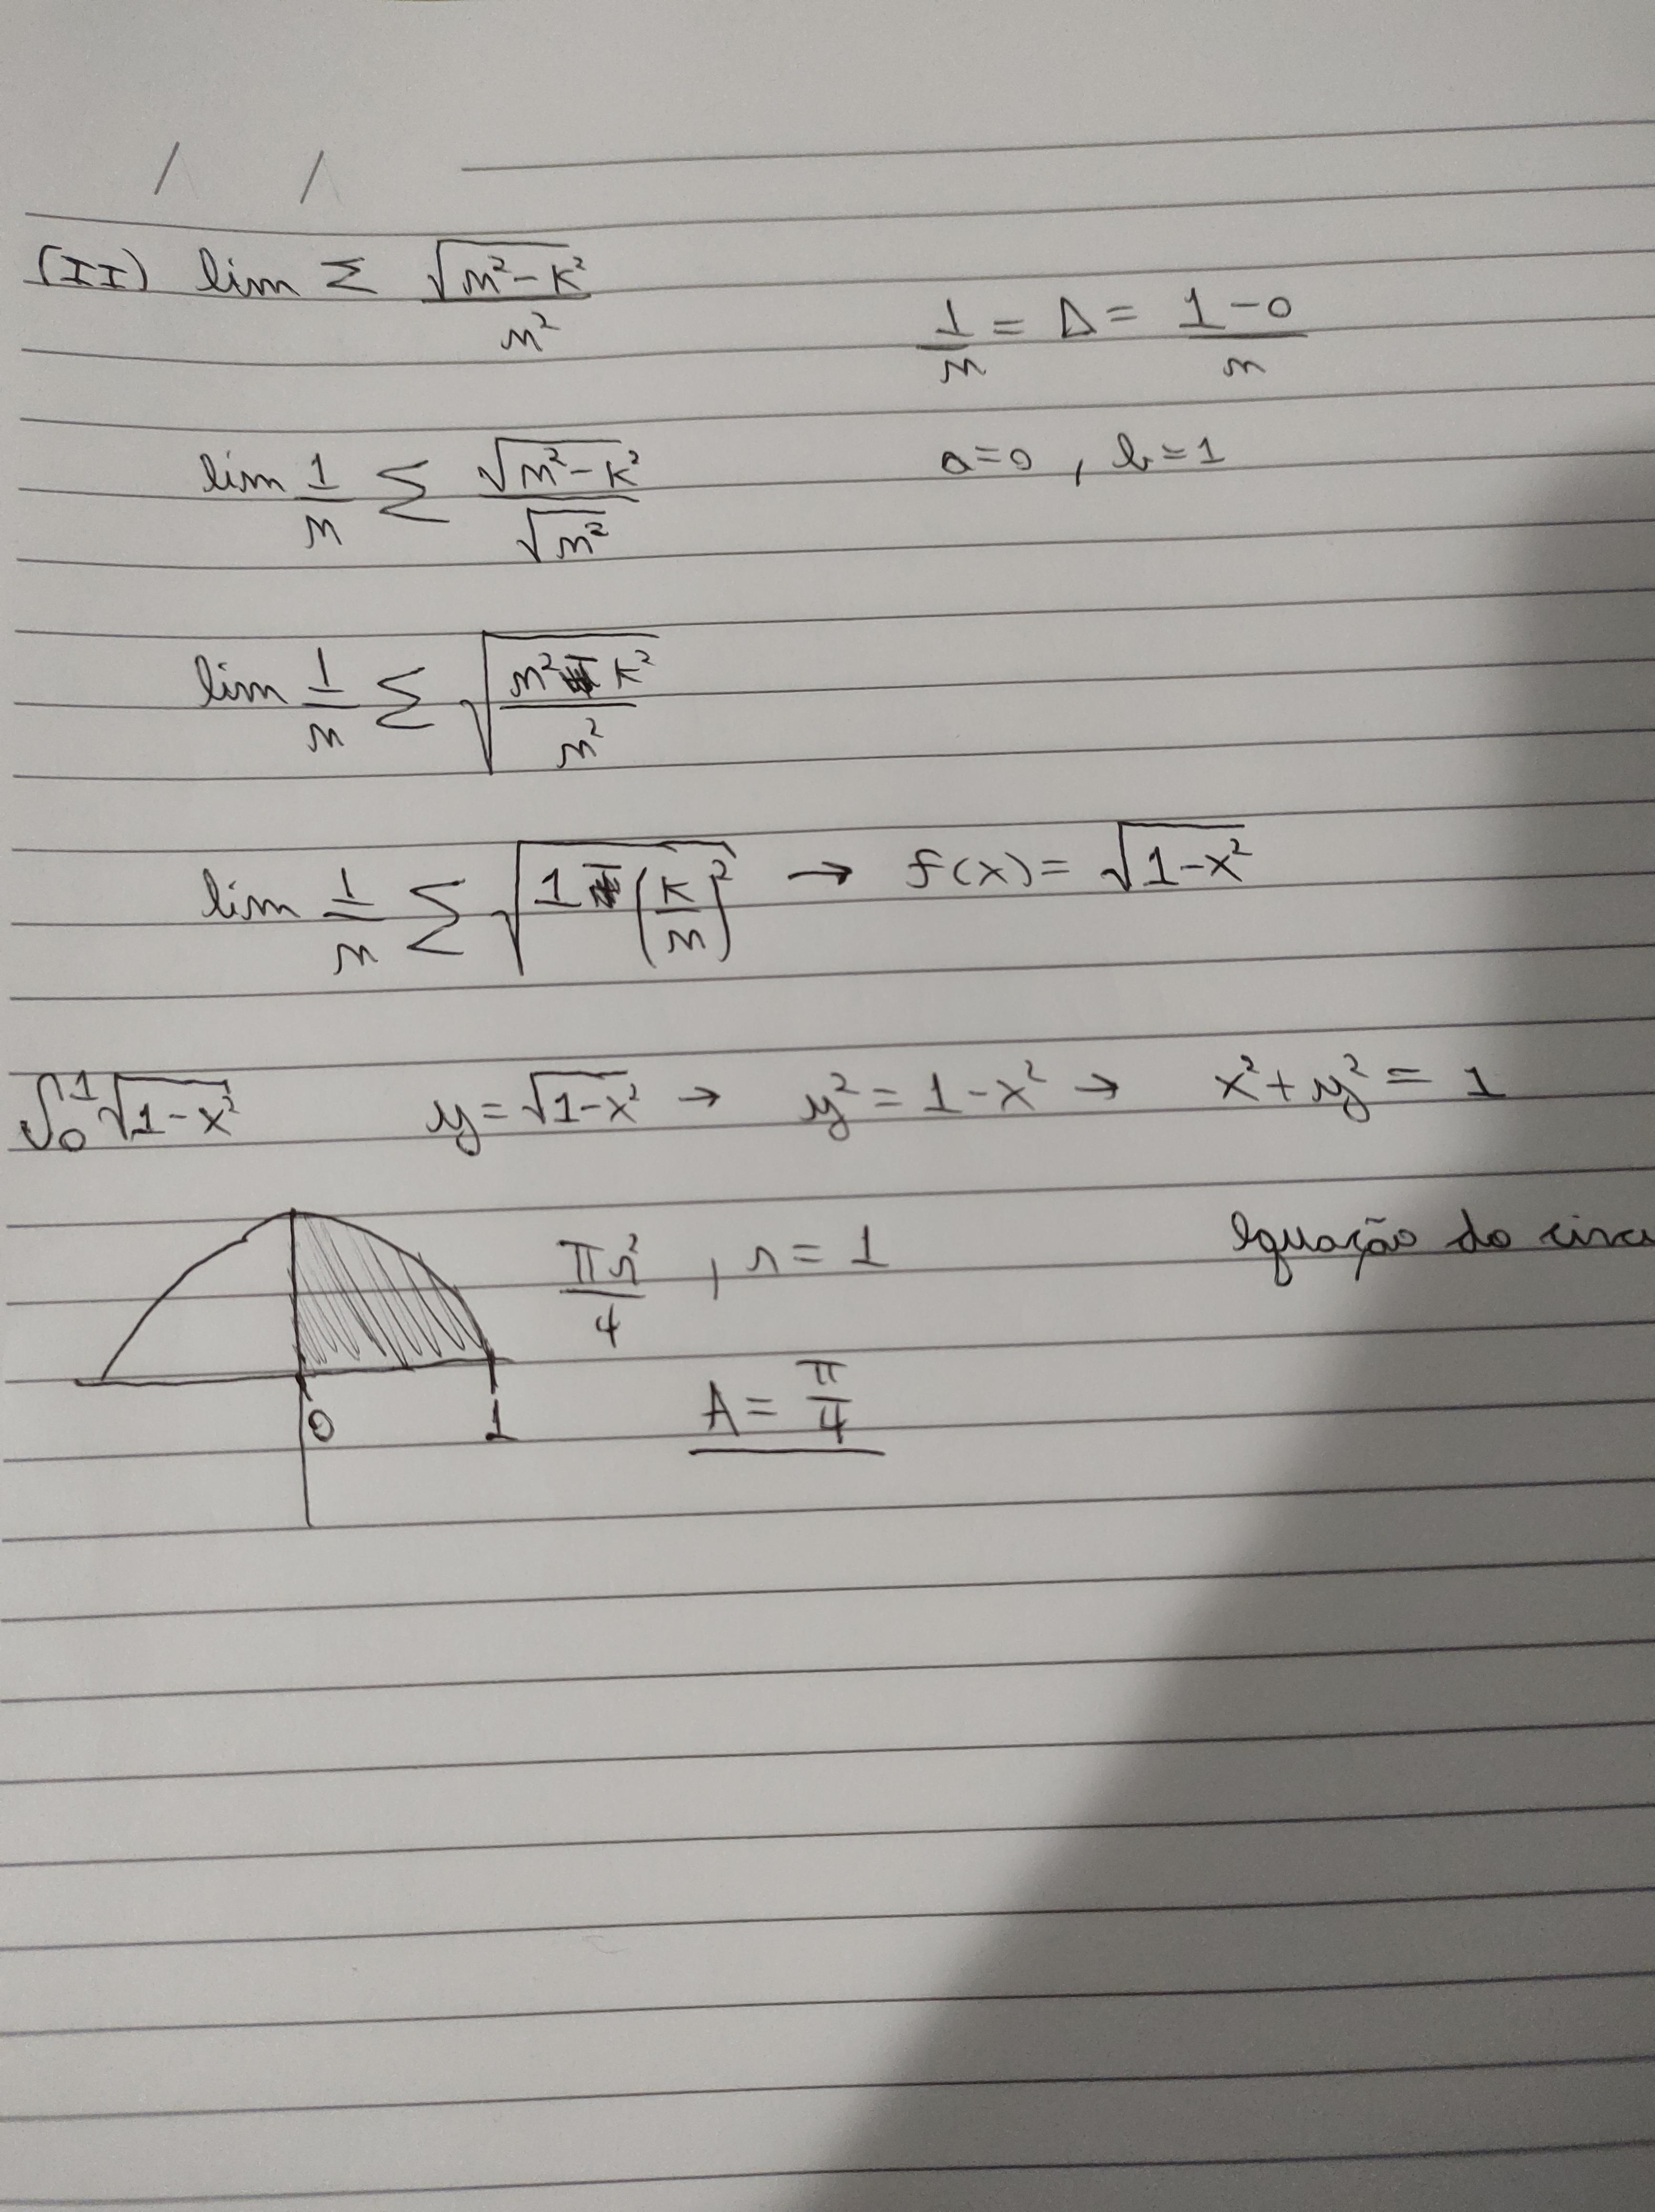 (II) lim Σ √(n²-k²)/n²
1/n = Δ = (1-0)/n
lim 1/n Σ √(n²-k²)/√(n²)
a=0 , b=1
lim 1/n Σ √((n²-k²)/n²)
lim 1/n Σ √(1-(k/n)²) → f(x) = √(1-x²)
∫₀¹ √(1-x²) y = √(1-x²) → y² = 1-x² → x²+y² = 1
πr²/4 , r = 1 Equação do
A = π/4
0 1